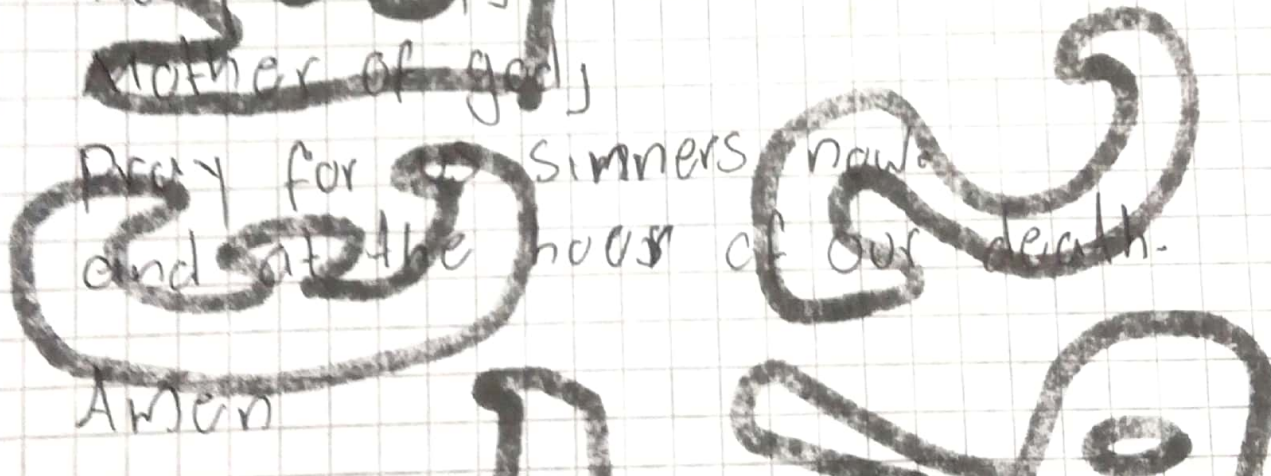 Mother of god,
Pray for us simners now.
and at the hour of our death.
Amen